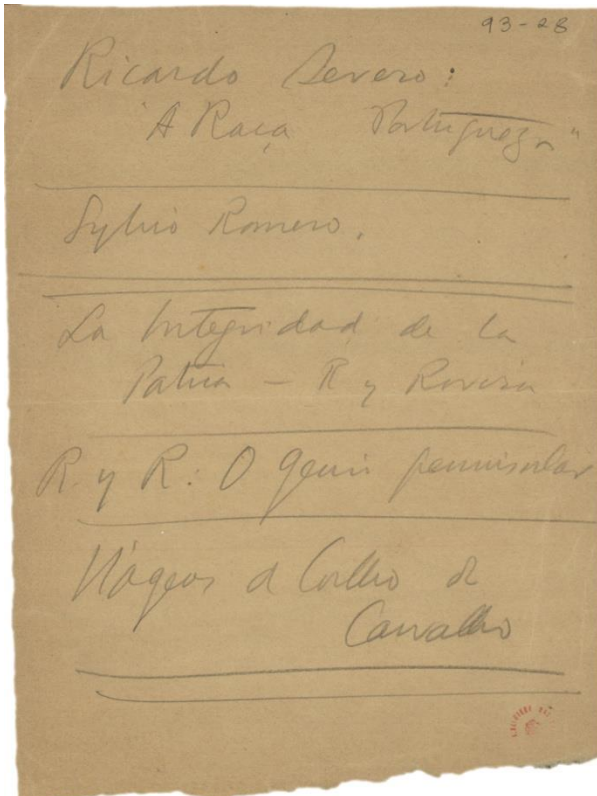 93-28
Ricardo Severo:
"A Raça Portugueza"
Sylvio Romero.
La Integridad de la
Patria – R y Rovira
R. y R: O genio peninsular
Viagens de Coelho de
Carvalho